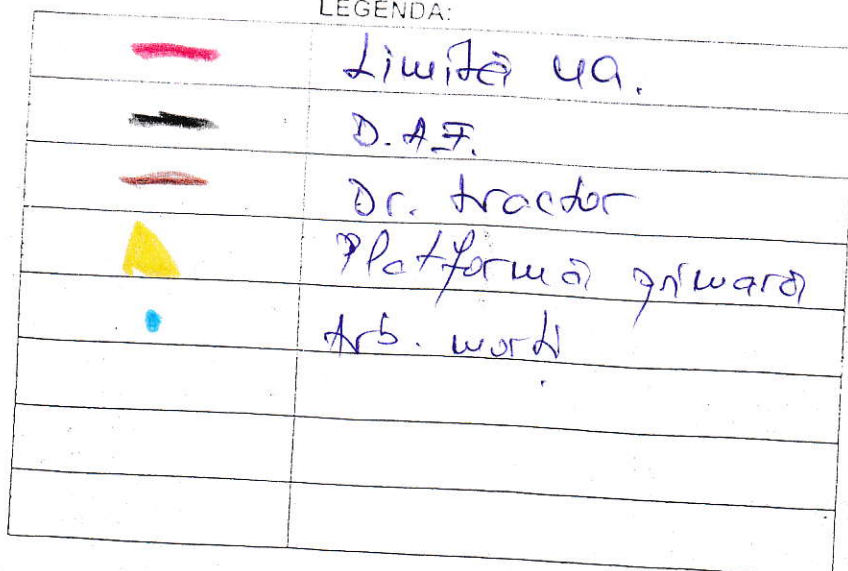 LEGENDA:
Limită ua.
D.A.F.
Dr. tractor
Platformă primară
Arb. morți